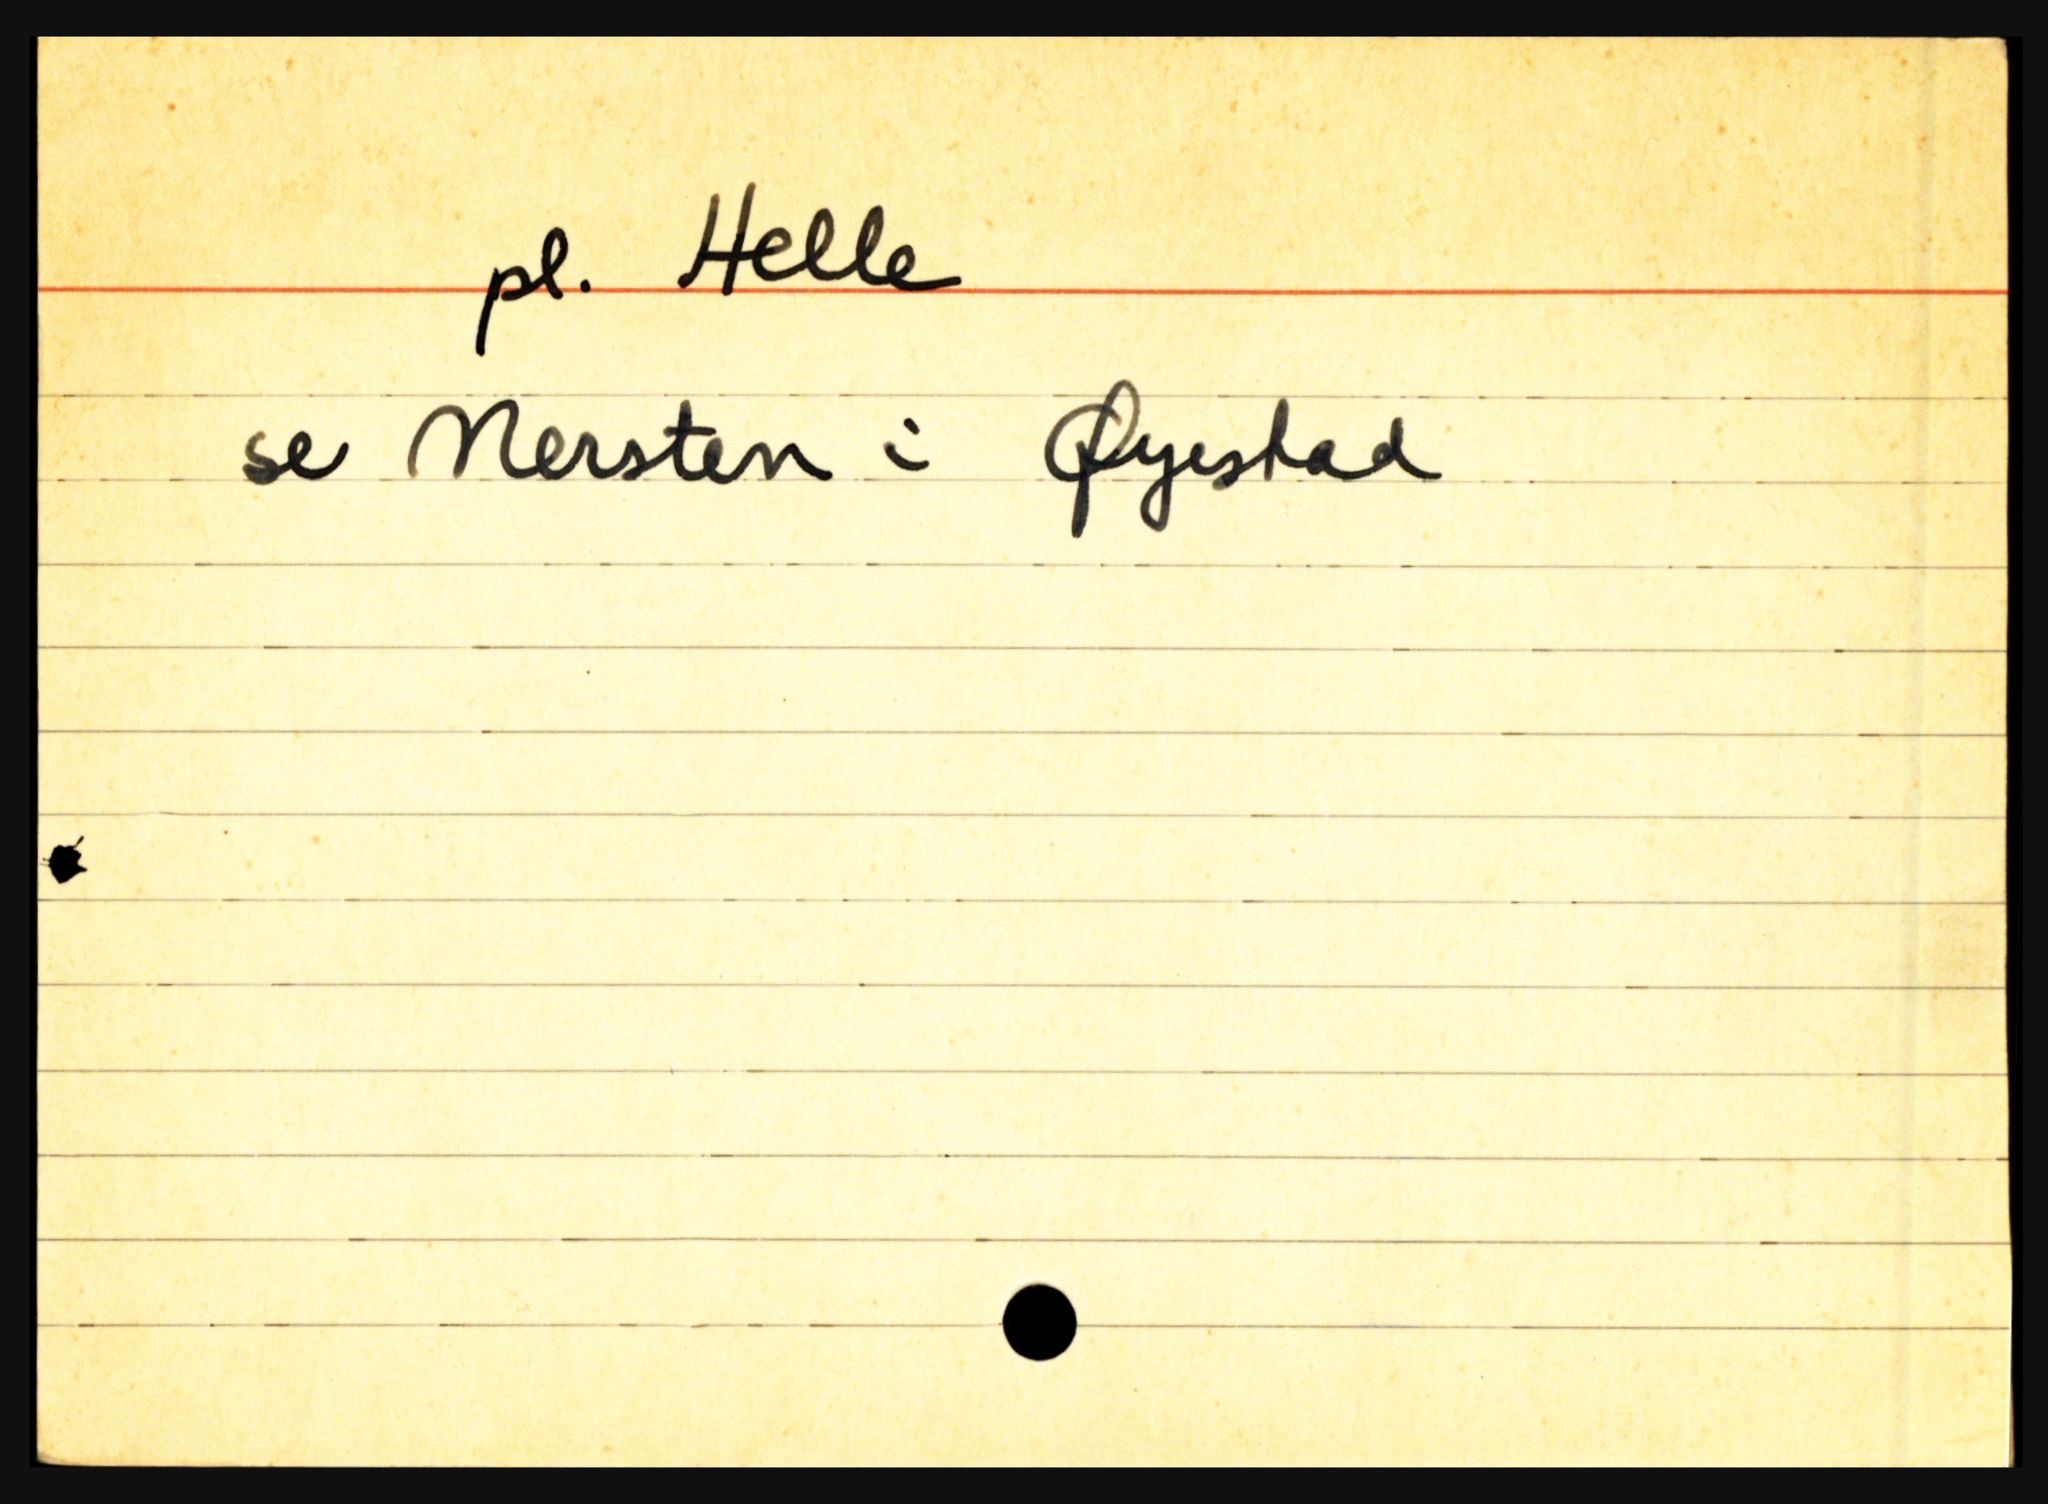 pl. Helle
se Nersten i Øyestad